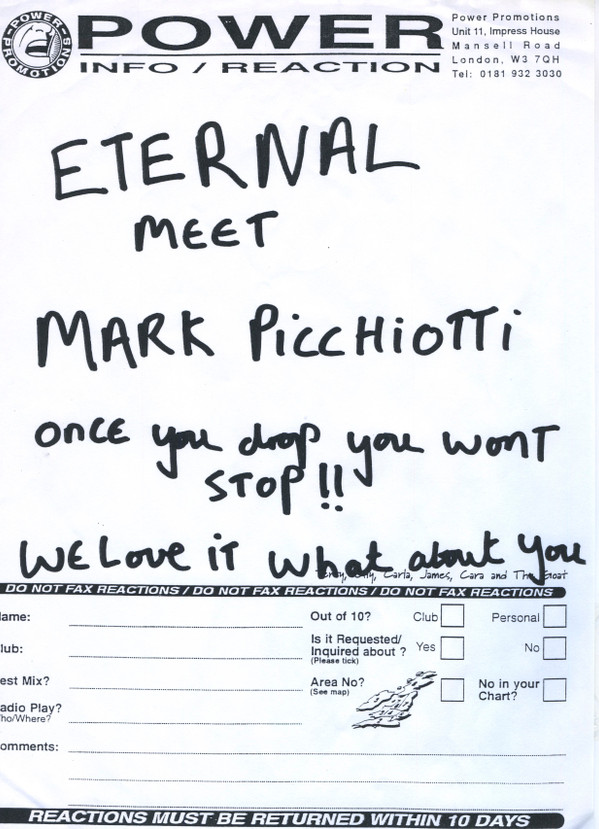 POWER PROMOTIONS
POWER
INFO / REACTION
Power Promotions
Unit 11, Impress House
Mansell Road
London, W3 7QH
Tel: 0181 932 3030
ETERNAL
MEET
MARK PiCCHiOTTi
ONCE you drop you WONT
STOP !!
WE Love iT what about You
Carla, James, Cara and The Goat
DO NOT FAX REACTIONS / DO NOT FAX REACTIONS / DO NOT FAX REACTIONS
ame: Out of 10? Club Personal
lub: Is it Requested/ Inquired about ? (Please tick) Yes No
est Mix? Area No? (See map) No in your Chart?
adio Play?
ho/Where?
omments:
REACTIONS MUST BE RETURNED WITHIN 10 DAYS